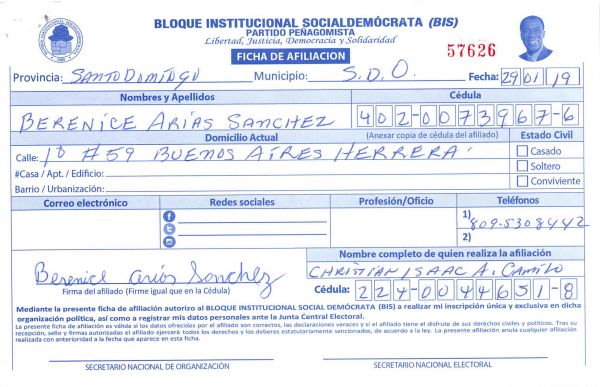 BLOQUE INSTITUCIONAL SOCIALDEMÓCRATA (BIS)
PARTIDO PEÑAGOMISTA
Libertad, Justicia, Democracia y Solidaridad
FICHA DE AFILIACION
57626
Provincia: SANTO DOMINGO Municipio: S.D.O. Fecha: 29/01/19
Nombres y Apellidos Cédula
BERENICE ARIAS SANCHEZ 402-0073967-6
Domicilio Actual (Anexar copia de cédula del afiliado) Estado Civil
Calle: 1ª #59 BUENOS AIRES HERRERA.
Casado
#Casa / Apt. / Edificio: Soltero
Barrio / Urbanización: Conviviente
Correo electrónico Redes sociales Profesión/Oficio Teléfonos
1) 809-5308442
2)
Nombre completo de quien realiza la afiliación
Berenice arias Sanchez CHRISTIAN ISAAC A. CAMILO
Firma del afiliado (Firme igual que en la Cédula) Cédula: 224-0044651-8
Mediante la presente ficha de afiliación autorizo al BLOQUE INSTITUCIONAL SOCIAL DEMÓCRATA (BIS) a realizar mi inscripción única y exclusiva en dicha
organización política, así como a registrar mis datos personales ante la Junta Central Electoral.
La presente ficha de afiliación es válida si los datos ofrecidos por el afiliado son correctos, las declaraciones veraces y si el afiliado tiene el disfrute de sus derechos civiles y políticos. Tras su
recepción, sello y firmas autorizadas el afiliado ejercerá todos los derechos y los deberes estatutariamente sancionados, de acuerdo a la ley. La presente afiliación anula cualquier afiliación
realizada con anterioridad a la fecha que aparece en esta ficha.
SECRETARIO NACIONAL DE ORGANIZACIÓN SECRETARIO NACIONAL ELECTORAL